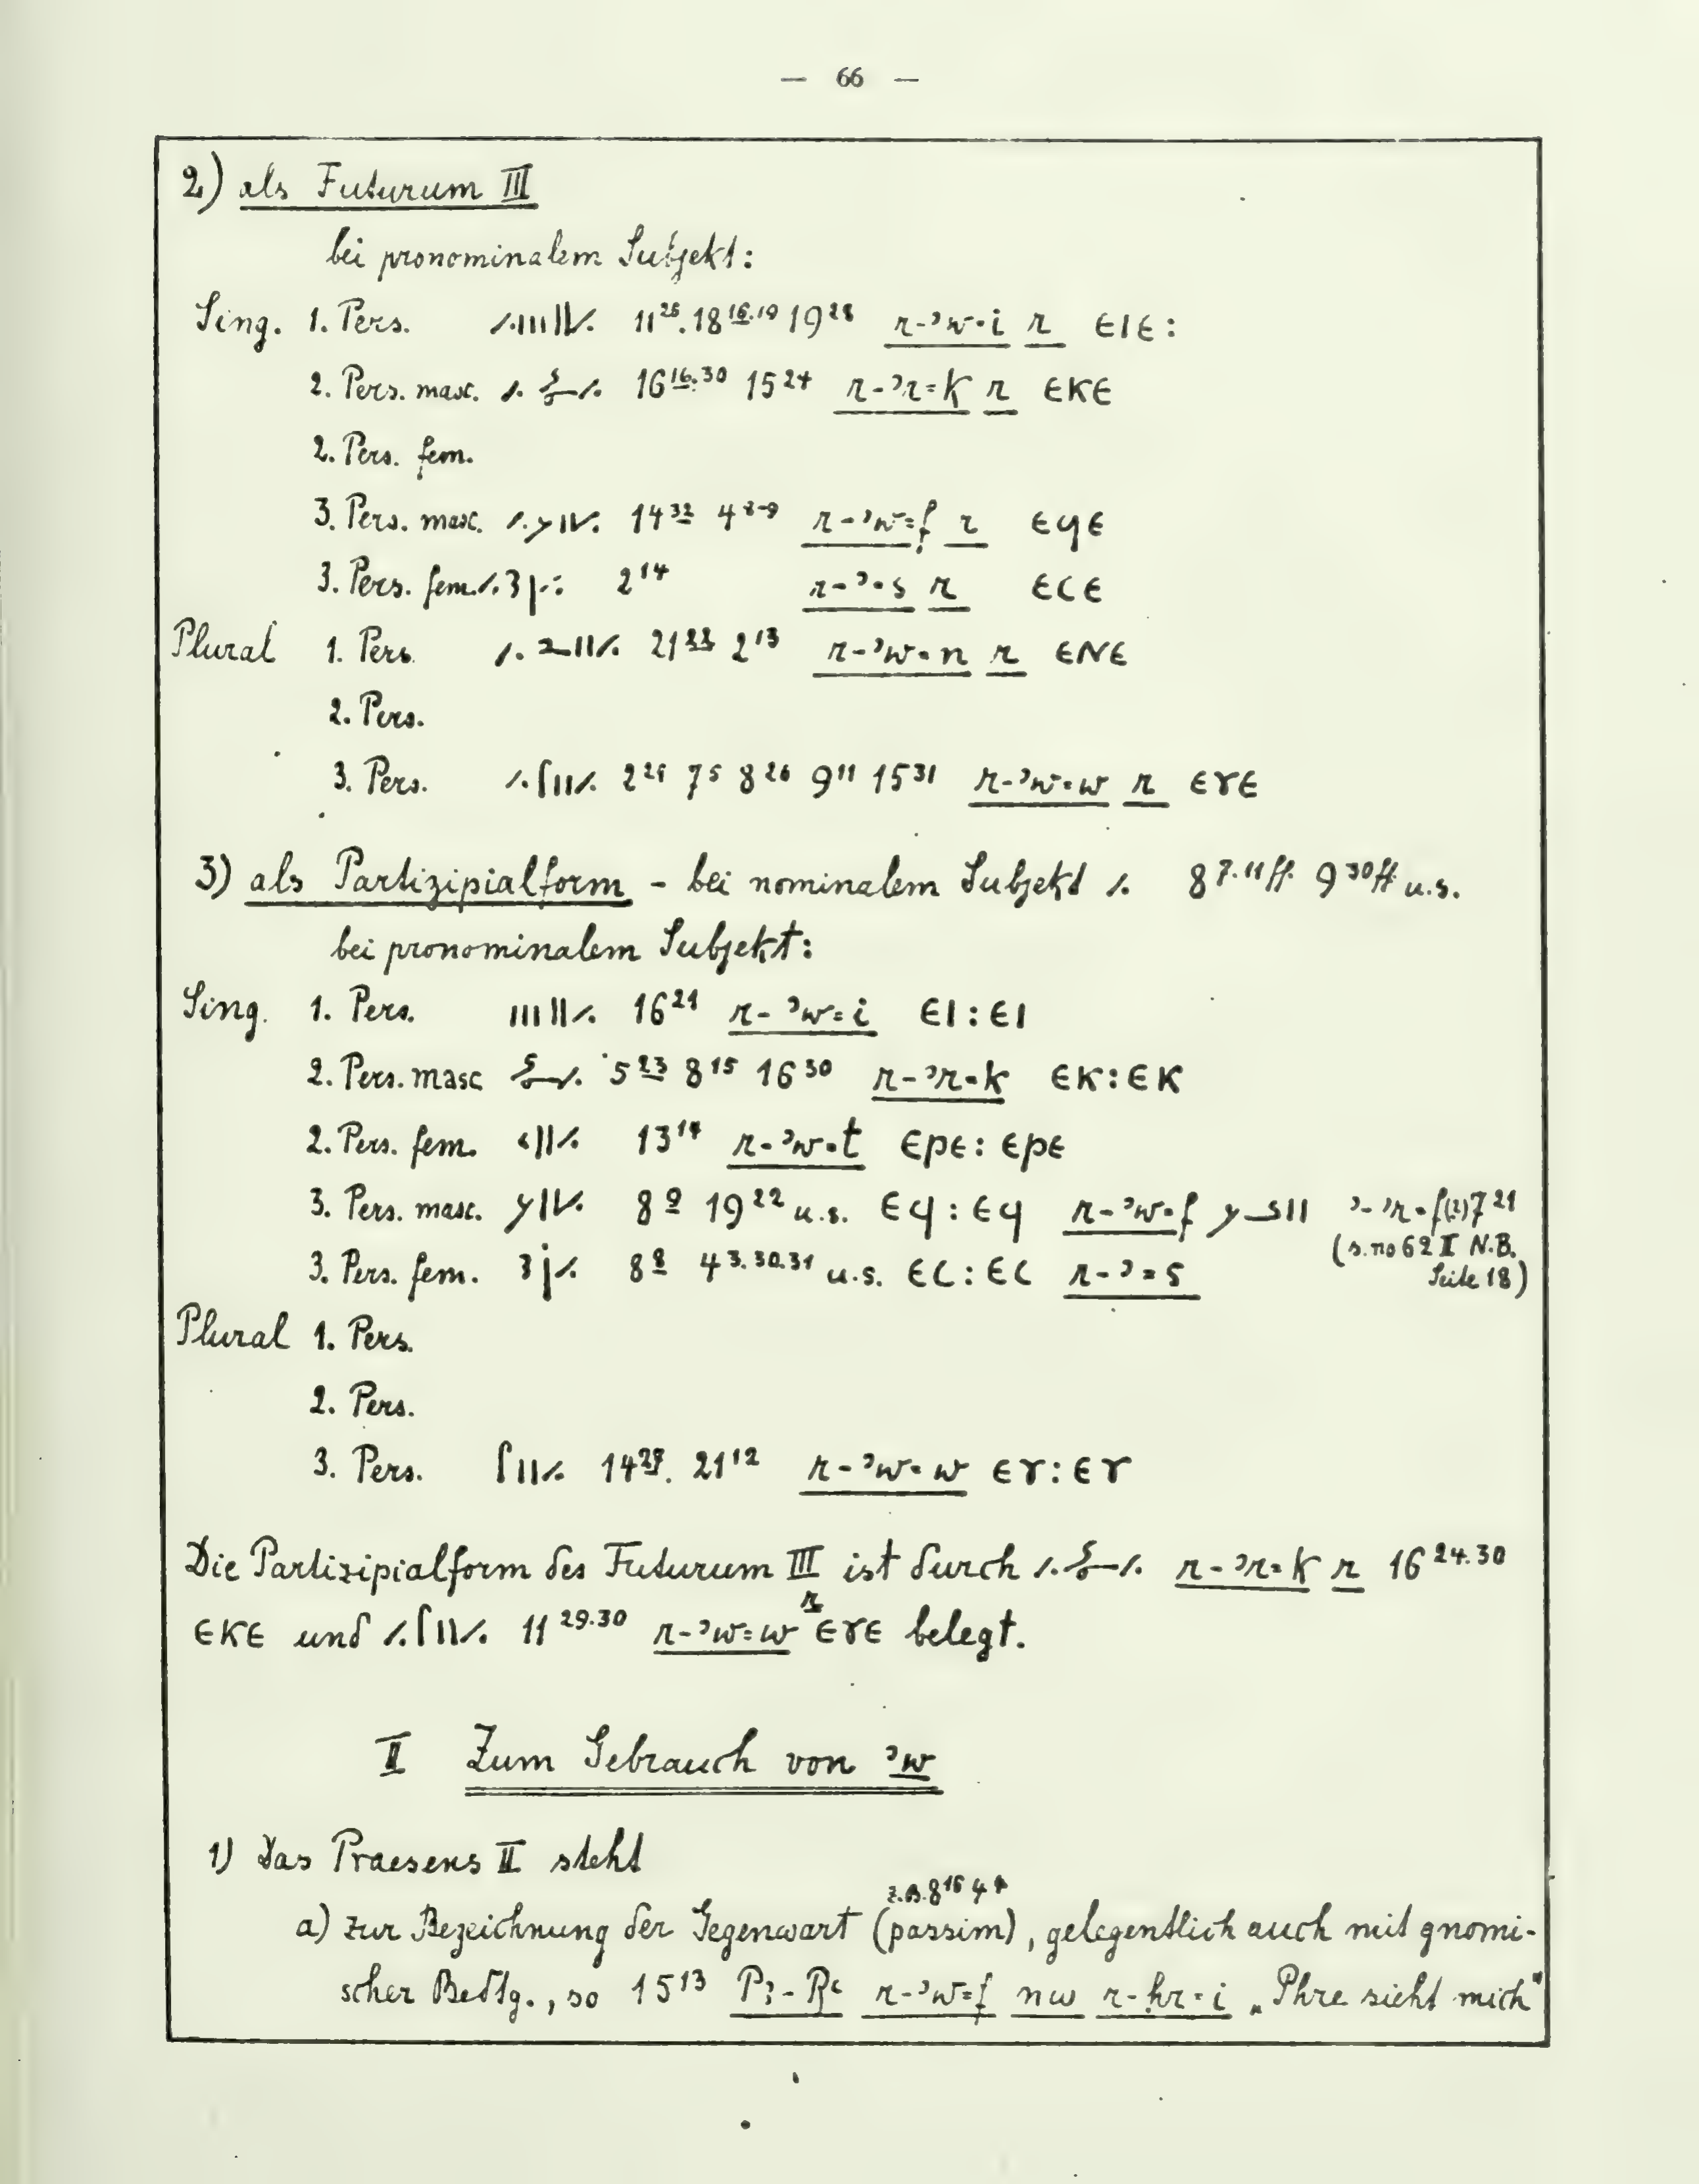 — 66 —
2) als Futurum III
bei pronominalem Subjekt:
Sing. 1. Pers. 11²⁶.18¹⁶·¹⁹ 19²⁸ r-ʾw=i r ⲉⲓⲉ:
2. Pers. masc. 16¹⁶·³⁰ 15²⁴ r-ʾr=k r ⲉⲕⲉ
2. Pers. fem.
3. Pers. masc. 14³² 4⁸⁻⁹ r-ʾw=f r ⲉϥⲉ
3. Pers. fem. 2¹⁴ r-ʾ=s r ⲉⲥⲉ
Plural 1. Pers. 2¹³ r-ʾw=n r ⲉⲛⲉ
2. Pers.
3. Pers. 7⁵ 8²⁶ 9¹¹ 15³¹ r-ʾw=w r ⲉⲩⲉ
3) als Partizipialform - bei nominalem Subjekt 8⁷·¹¹ff. 9³⁰ff. u.s.
bei pronominalem Subjekt:
Sing. 1. Pers. 16²¹ r-ʾw=i ⲉⲓ:ⲉⲓ
2. Pers. masc 5²³ 8¹⁵ 16³⁰ r-ʾr=k ⲉⲕ:ⲉⲕ
2. Pers. fem. 13¹⁴ r-ʾw=t ⲉⲣⲉ:ⲉⲣⲉ
3. Pers. masc. 8⁹ 19²² u.s. ⲉϥ:ⲉϥ r-ʾw=f ʾ-ʾr=f(?)7²¹
(s. no 62 II N.B.
Seite 18)
3. Pers. fem. 8⁸ 4³·³⁰·³¹ u.s. ⲉⲥ:ⲉⲥ r-ʾ=s
Plural 1. Pers.
2. Pers.
3. Pers. 21¹² r-ʾw=w ⲉⲩ:ⲉⲩ
Die Partizipialform des Futurum III ist durch r-ʾr=k r 16²⁴·³⁰
ⲉⲕⲉ und 11²⁹·³⁰ r-ʾw=w r ⲉⲩⲉ belegt.
II Zum Gebrauch von ʾw
1) Das Praesens II steht
a) zur Bezeichnung der Gegenwart (passim), z.B. 8¹⁶ gelegentlich auch mit gnomi-
scher Bedtg., so 15¹³ Pꜣ-Rꜥ r-ʾw=f nw r-ḥr=i „Phre sieht mich"